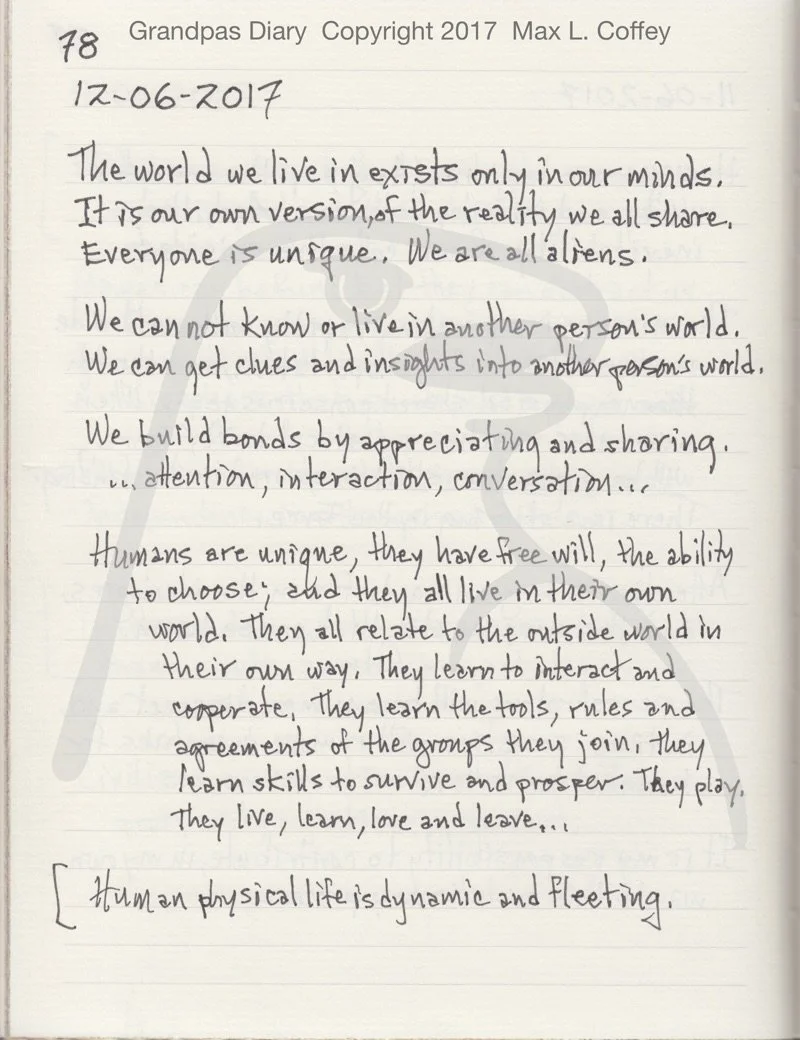 Grandpas Diary Copyright 2017 Max L. Coffey
78
12-06-2017
The world we live in exists only in our minds.
It is our own version, of the reality we all share.
Everyone is unique. We are all aliens.
We can not know or live in another person's world.
We can get clues and insights into another person's world.
We build bonds by appreciating and sharing.
... attention, interaction, conversation...
Humans are unique, they have free will, the ability
to choose; and they all live in their own
world. They all relate to the outside world in
their own way. They learn to interact and
cooperate. They learn the tools, rules and
agreements of the groups they join. They
learn skills to survive and prosper. They play.
They live, learn, love and leave...
[ Human physical life is dynamic and fleeting.